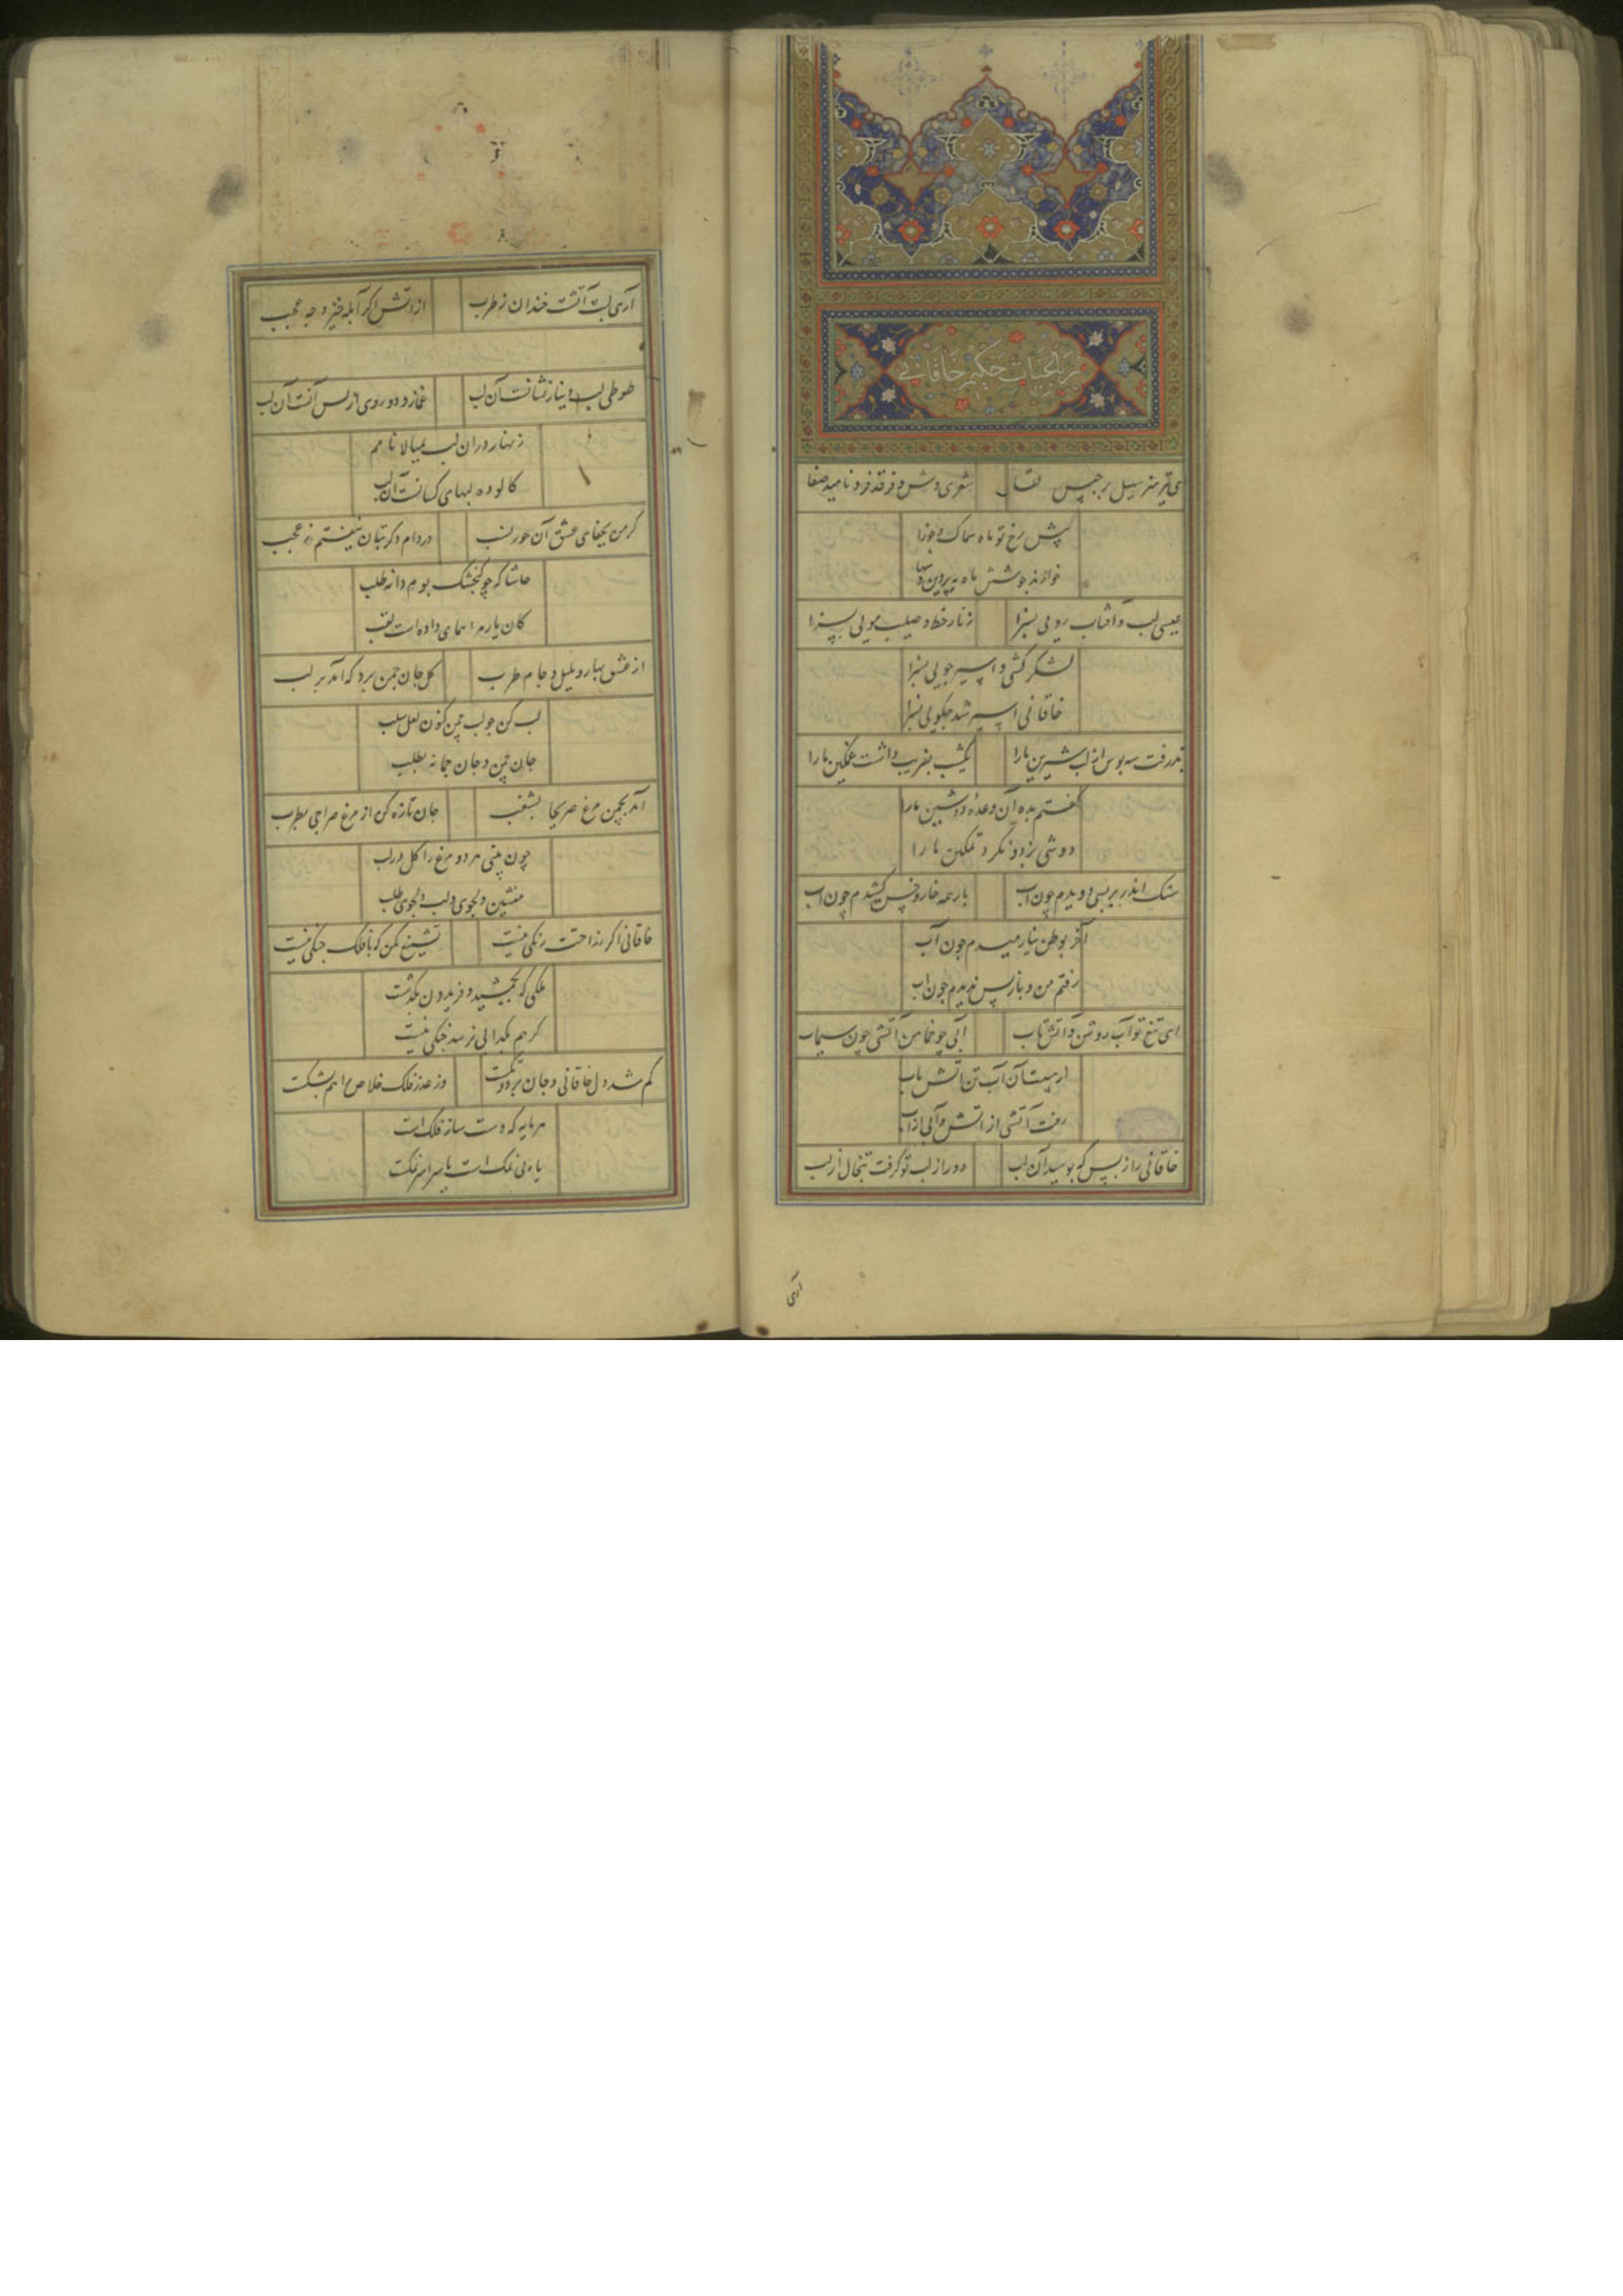 رباعیات حکیم خاقانی
شعری وش و فرقد فر و ناهید صفا
پیش رخ تو ماه سماک و جوزا
خوانند جوشش ماه پروین
عیسی لب و آفتاب رویی پسرا
زنار خط و صلیب مویی پسرا
لشکر کشی و اسیر جویی پسرا
خاقانی اسیر شد چگویی پسرا
سه بوس از لب شیرین ما را
یکشب بفریب داشت غمگین ما را
گفتم بده آن وعده دوشین ما را
دوشی بزد و نکرد تمکین ما را
سنک اندر بر بسی دویدم چون آب
بار همه خار و خس کشیدم چون آب
آخر بوطن نیارمیدم چون آب
رفتم من و بازپس ندیدم چون آب
ای تیغ تو آب روشن و آتش ناب
آبی چو خماهن آتشی چون سیماب
از هیبت آن آب تن آتش تاب
رفت آتشی از آتش و آبی از آب
خاقانی را ز بس که بوسید آن لب
دور از لب تو گرفت تبخال از لب
آری
آری لب آتشست خندان ز طرب
از آتش اگر آبله خیزد چه عجب
طوطی لب و دینار نشانست آن لب
غماز و دو روی از پس آنست آن لب
زنهار در آن لب میالا نامم
کالوده لبهای کسانست آن لب
گر من بجفای عشق آن حور نسب
در دام دگر بتان نیفتم نه عجب
حاشا که چو گنجشک بوم دانه طلب
کان یار مرا همای داده است لقب
از عشق بهار و بلبل و جام طرب
گل جان چمن برد که آمد بر لب
لب کن چو لب چمن کنون لعل سلب
جان چمن و جان چمانه بطلب
آمد بچمن مرغ صراحی بشغب
جان تازه کن از مرغ صراحی بطرب
چون بینی هر دو مرغ را گل در لب
منشین و لب جوی و لب دلجوی طلب
خاقانی اگر ز راحتت رنگی نیست
تشنیع مکن که با فلک جنگی نیست
ملکی که بجمشید و فریدون بگذشت
گر هم بگدایی نرسد ننگی نیست
گم شد دل خاقانی و جان بر دو یکیست
وز غدر فلک خلاص را هم بشکیست
هر مایه که دست ساز فلک است
یا بی نمک است یا سراسر نمکست